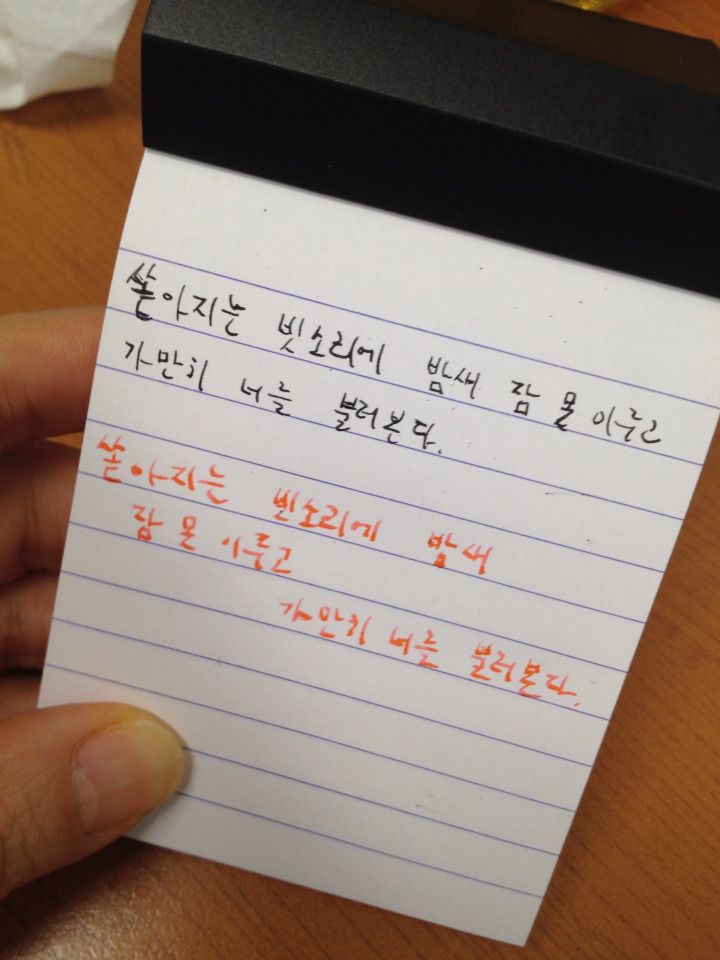 쏟아지는 빗소리에 밤새 잠 못 이루고
가만히 너를 불러본다.
쏟아지는 빗소리에 밤새
잠 못 이루고
가만히 너를 불러본다.